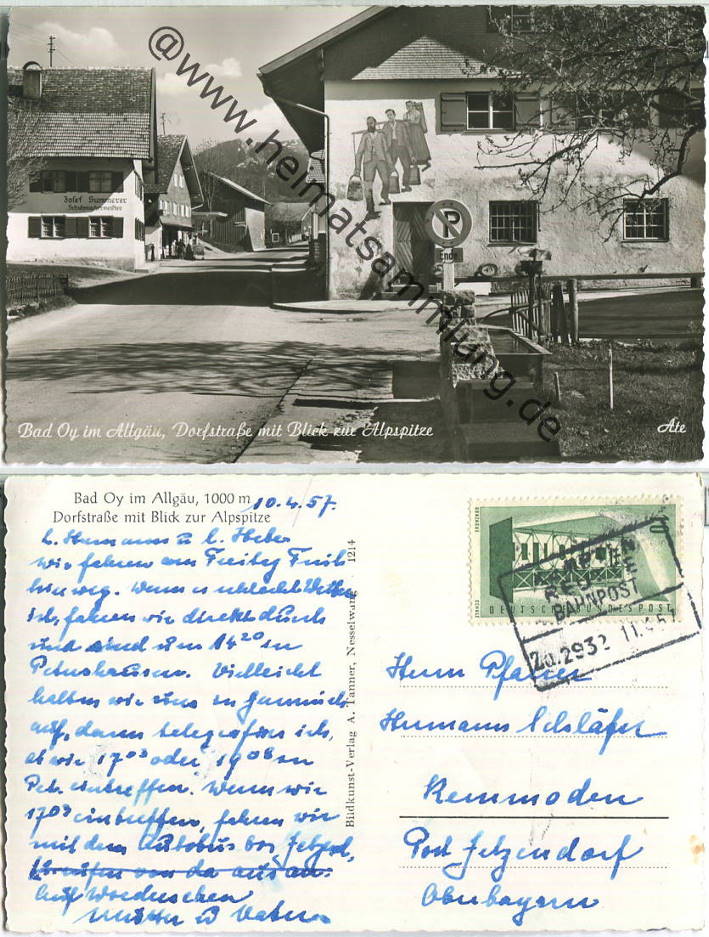 @www.heimatsammlung.de
Josef Summerer
Schuhmachermeister
P
Ende
Bad Oy im Allgäu, Dorfstraße mit Blick zur Alpspitze
Ate
Bad Oy im Allgäu, 1000 m
Dorfstraße mit Blick zur Alpspitze
10.4.57.
L. Hermann u. l.
wir fahren am Freitag Früh
hier weg. Wenn es schlecht Wetter
ist, fahren wir direkt durch
und sind um 14 20 in
Petershausen. Vielleicht
halten wir uns in Garmisch
auf, dann telegrafiere ich,
ob wir 17 03 oder 19 08 in
Pet. eintreffen. Wenn wir
17 03 eintreffen, fahren wir
mit dem Autobus bis Jetzend.,
wir rufen von da aus an.
Auf Wiedersehen
Mutter u Vater
Bildkunst-Verlag A. Tanner, Nesselwang 1214
10
DEUTSCHE BUNDESPOST
KEMPTEN
BAHNPOST
Zug 2932 11.4.57
Herrn Pfarrer
Hermann Schläfer
Kemmoden
Post Jetzendorf
Oberbayern